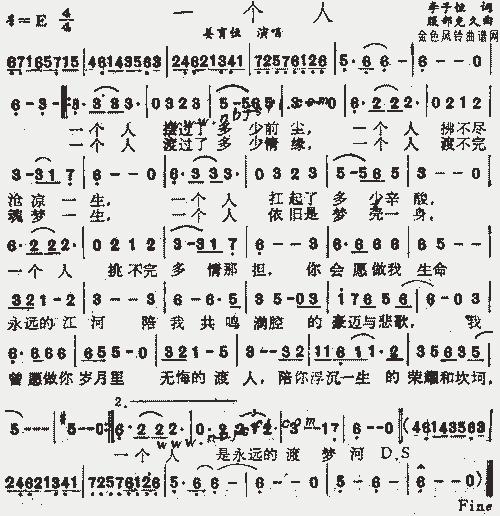 一个人
李子恒 词
姜育恒 演唱
金色风铃曲谱网
♯=E 4/4
67171 65715 | 46143563 | 24621341 | 72576126 | 5·6 6- | 6--0
6-3- 3·3 3 3· | 0323 | 6·2 2 2· | 0212
一个人 渡过了多少前尘， 一个人 拂不尽
一个人 渡过了多少情缘， 一个人 渡不完
3-317 | 6--0 | 6·3 3 3· | 0323 | 5-565 | 3--0
沧凉一生， 一个人 扛起了多少辛酸，
魂梦一生， 一个人 依旧是梦亮一身，
6·2 2 2· | 0212 | 3-317 | 6--3 | 6·666 | 6--0
一个人 挑不完多情那担， 你会愿做我生命
321-2 | 3--3 | 6-6·5 | 35-03 | 17656 | 6-03
永远的江河 陪我共鸣满腔的豪迈与悲歌， 我
6·666 | 655-0 | 321-5 | 3--32 | 116 11·2 | 35635
曾愿做你岁月里 无悔的渡人，陪你浮沉一生的荣耀和坎坷，
2.
5--- | 5--0 | 6·2 2 2· | 3--17 | 6--0 | (46143563
一个人 是永远的渡梦河 D.S
24621341 | 72576126 | 5·6 6- | 5-6- | 6--0)
Fine
www.nbfsf.com